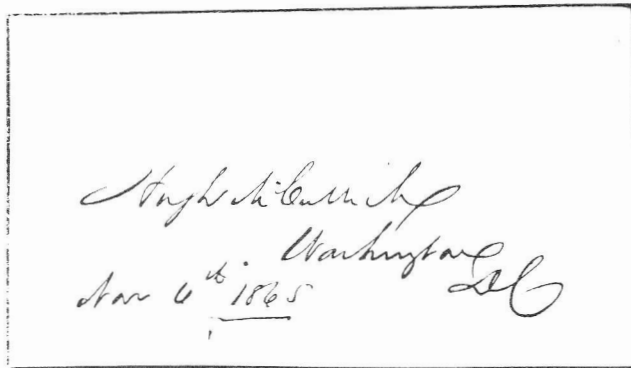 Hugh McCulloch
Washington
D C
Nov 6th 1865